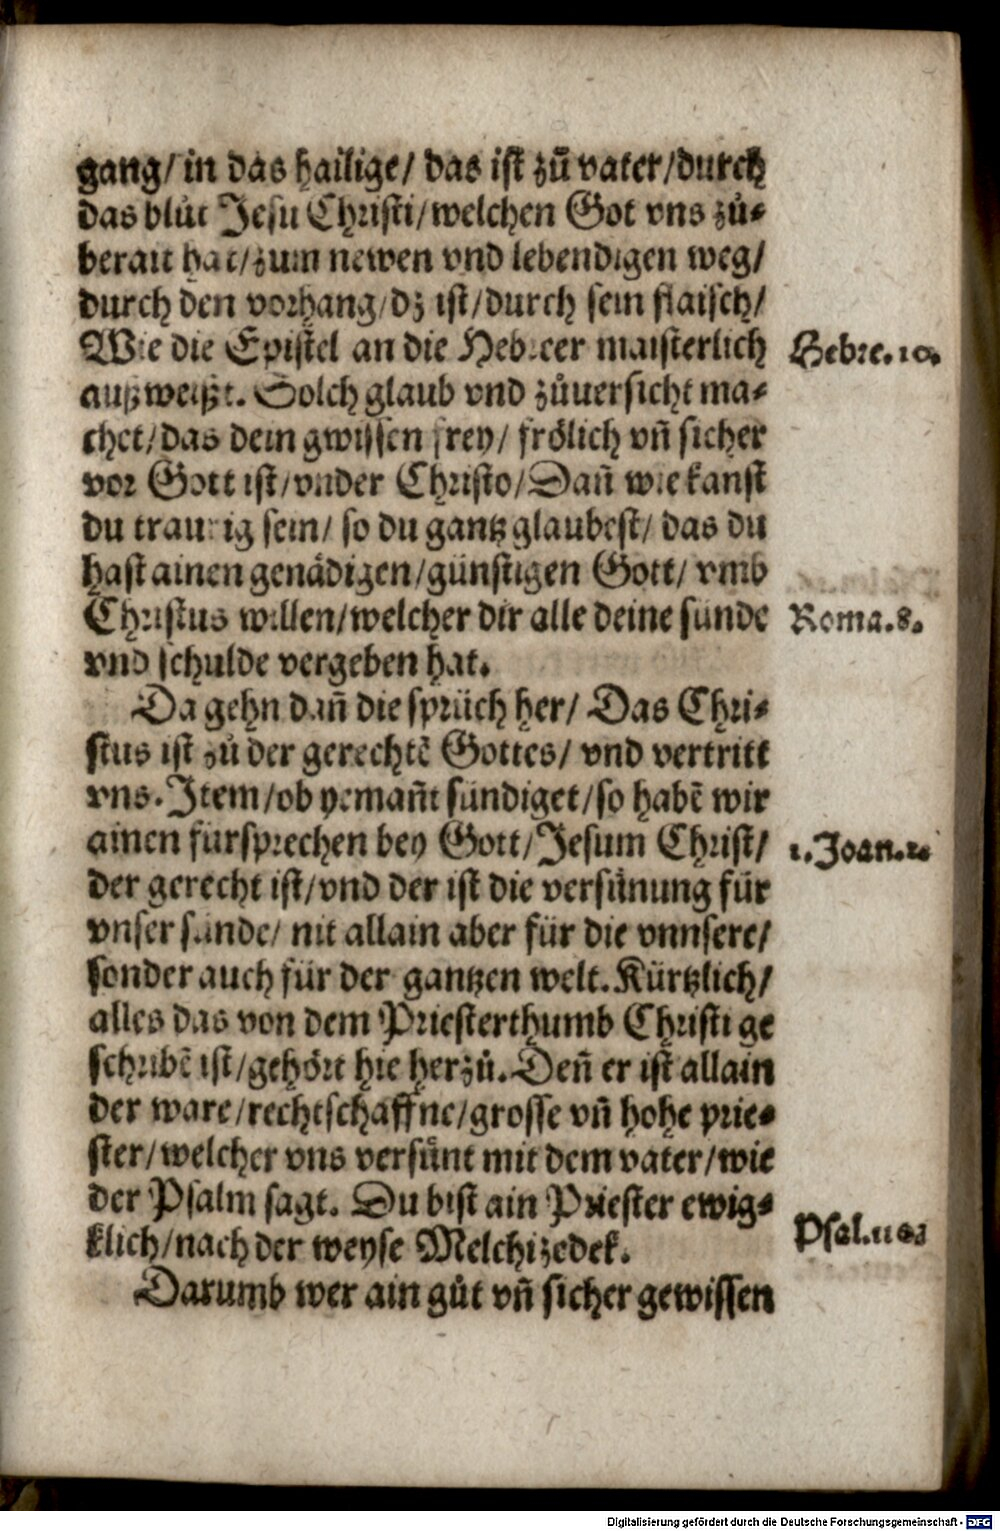 gang/ in das hailige/ das ist zů vater/durch
das blůt Jesu Christi/welchen Got vns zů⸗
berait hat/zum newen vnd lebendigen weg/
durch den vorhang/dz ist/durch sein flaisch/
Wie die Epistel an die Hebreer maisterlich
Hebre.10.
außweißt. Solch glaub vnd zůuersicht ma⸗
chet/das dein gwissen frey/ frölich vñ sicher
vor Gott ist/vnder Christo/Dañ wie kanst
du traurig sein/ so du gantz glaubest/ das du
hast ainen genädigen/günstigen Gott/ vmb
Christus willen/welcher dir alle deine sünde
Roma.8.
vnd schulde vergeben hat.
Da gehn dañ die sprüch her/ Das Chri⸗
stus ist zů der gerechtē Gottes/ vnd vertritt
vns. Item/ob yemañt sündiget/so habē wir
ainen fürsprechen bey Gott/Jesum Christ/
1.Joan.2.
der gerecht ist/vnd der ist die versünung für
vnser sünde/ nit allain aber für die vnnsere/
sonder auch für der gantzen welt. Kürtzlich/
alles das von dem Priesterthumb Christi ge
schribē ist/gehört hie herzů. Deñ er ist allain
der ware/rechtschaffne/grosse vñ hohe prie⸗
ster/welcher vns versünt mit dem vater/wie
der Psalm sagt. Du bist ain Priester ewig⸗
Psal.110
klich/nach der weyse Melchizedek.
Darumb wer ain gůt vñ sicher gewissen
Digitalisierung gefördert durch die Deutsche Forschungsgemeinschaft - DFG